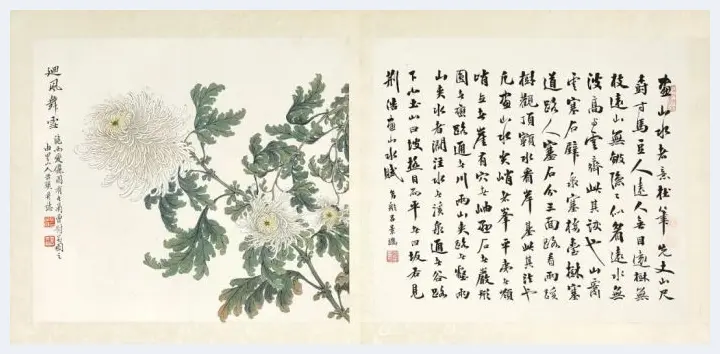 畫山水者意在筆先丈山尺
樹寸馬豆人遠人無目遠樹無
枝遠山無皴隱隱似眉遠水無
波高與雲齊此其訣也山腰
雲塞石壁泉塞樓臺樹塞
道路人塞石分三面路看兩蹊
樹觀頂顊水看岸基此其法也
凡畫山水尖峭者峯平夷者嶺
峭立者崖有穴者岫懸石者巖形
圓者巒路通者川兩山夾路者壑兩
山夾水者澗注水者溪泉通者谷路
下小土山曰坡極目而平者曰坂若見
荆浩畫山水賦
迴風舞雪